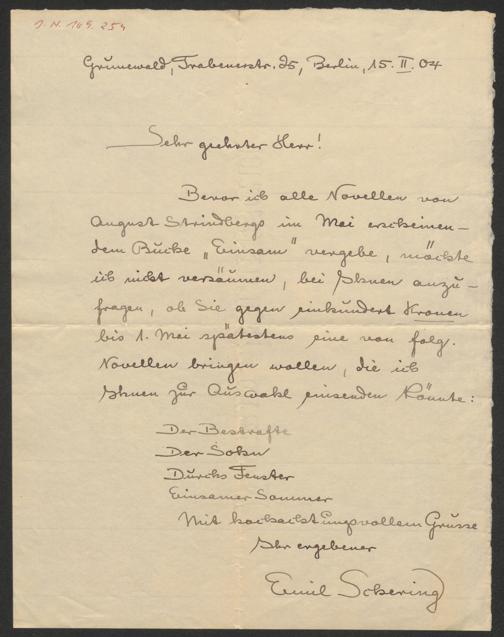 J. N. 149.254
Grunewald, Trabenerstr. 25, Berlin, 15. II. 04
Sehr geehrter Herr!
Bevor ich alle Novellen von
August Strindbergs im Mai erscheinen-
dem Buche „Einsam" vergebe, möchte
ich nicht versäumen, bei Ihnen anzu-
fragen, ob Sie gegen einhundert Kronen
bis 1. Mai spätestens eine von folg.
Novellen bringen wollen, die ich
Ihnen zur Auswahl einsenden könnte:
Der Bestrafte
Der Sohn
Durchs Fenster
Einsamer Sommer
Mit hochachtungsvollem Grusse
Ihr ergebener
Emil Schering